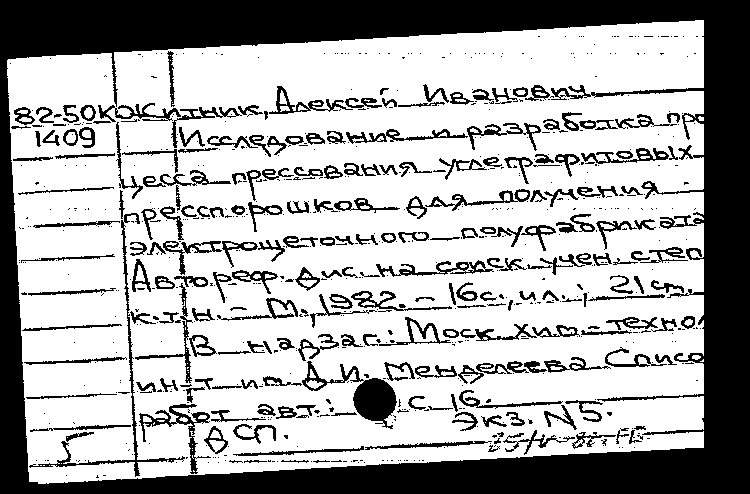 82-50К Житник, Алексей Иванович.
1409 Исследование и разработка про
цесса прессования углеграфитовых
пресспорошков для получения -
электрощеточного полуфабриката
Автореф. дис. на соиск. учен. степ
к.т.н. - М., 1982. - 16с., ил.; 21 см.
В надзаг.: Моск. хим.-технол
ин-т им. Д.И. Менделеева Списо
работ авт.: с. 16.
Экз. N 5.
5 ДСП.